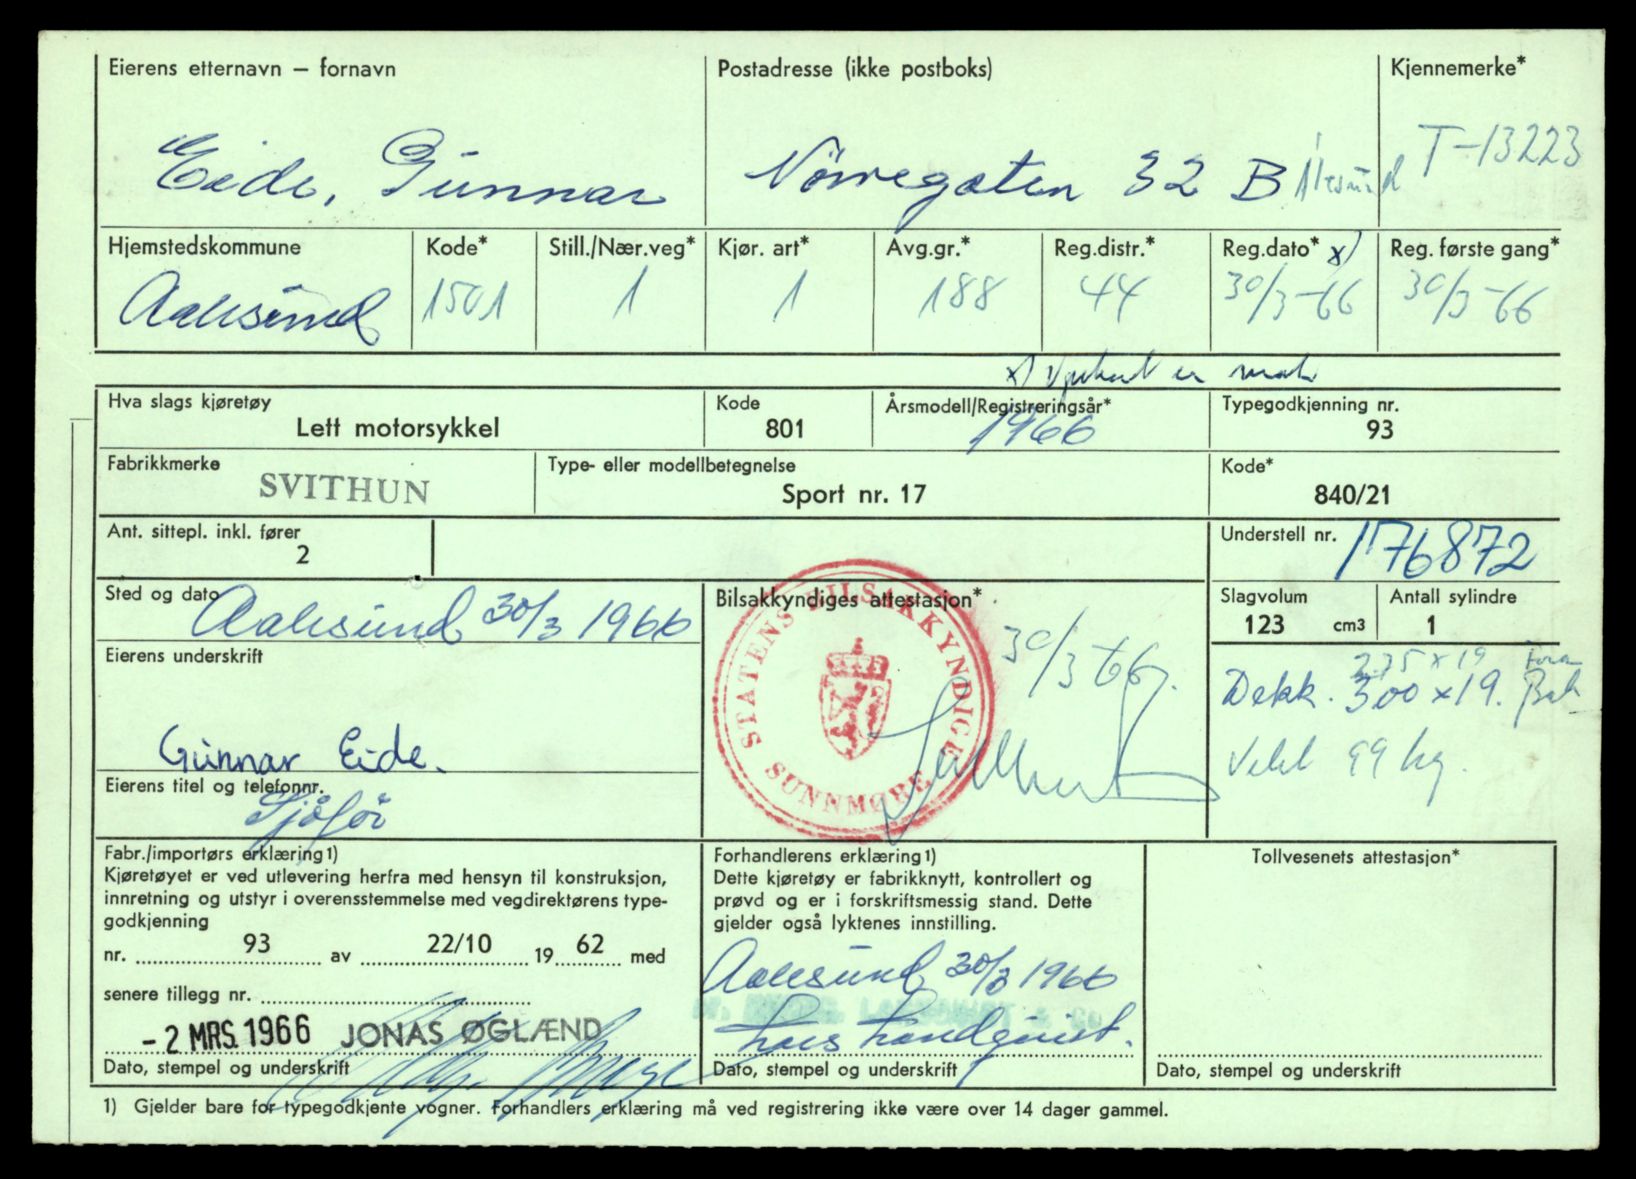 Eierens etternavn – fornavn Postadresse (ikke postboks) Kjennemerke*
Eide, Gunnar Nörregaten 32 B Ålesund T-13223
Hjemstedskommune Kode* Still./Nær.veg* Kjør. art* Avg.gr.* Reg.distr.* Reg.dato* x) Reg. første gang*
Aalesund 1501 1 1 188 44 30/3-66 30/3-66
x)
Hva slags kjøretøy Kode Årsmodell/Registreringsår* Typegodkjenning nr.
Lett motorsykkel 801 1966 93
Fabrikkmerke Type- eller modellbetegnelse Kode*
SVITHUN Sport nr. 17 840/21
Ant. sittepl. inkl. fører Understell nr.
2 176872
Sted og dato Aalesund 30/3 1966 Bilsakkyndiges attestasjon* Slagvolum Antall sylindre
123 cm3 1
STATENS BILSAKKYNDIGE SUNNMØRE
Eierens underskrift 30/3-66 2.75 x 19 Foran
Dekk. 300 x 19. Bak
Gunnar Eide. Vekt 99 kg.
Eierens titel og telefonnr.
Sjåfør
Fabr./importørs erklæring1) Forhandlerens erklæring1) Tollvesenets attestasjon*
Kjøretøyet er ved utlevering herfra med hensyn til konstruksjon, Dette kjøretøy er fabrikknytt, kontrollert og
innretning og utstyr i overensstemmelse med vegdirektørens type- prøvd og er i forskriftsmessig stand. Dette
godkjenning gjelder også lyktenes innstilling.
nr. 93 av 22/10 19 62 med Aalesund 30/3 1966
senere tillegg nr.
-2 MRS. 1966 JONAS ØGLÆND Lars Landquist.
Dato, stempel og underskrift Dato, stempel og underskrift Dato, stempel og underskrift
1) Gjelder bare for typegodkjente vogner. Forhandlers erklæring må ved registrering ikke være over 14 dager gammel.